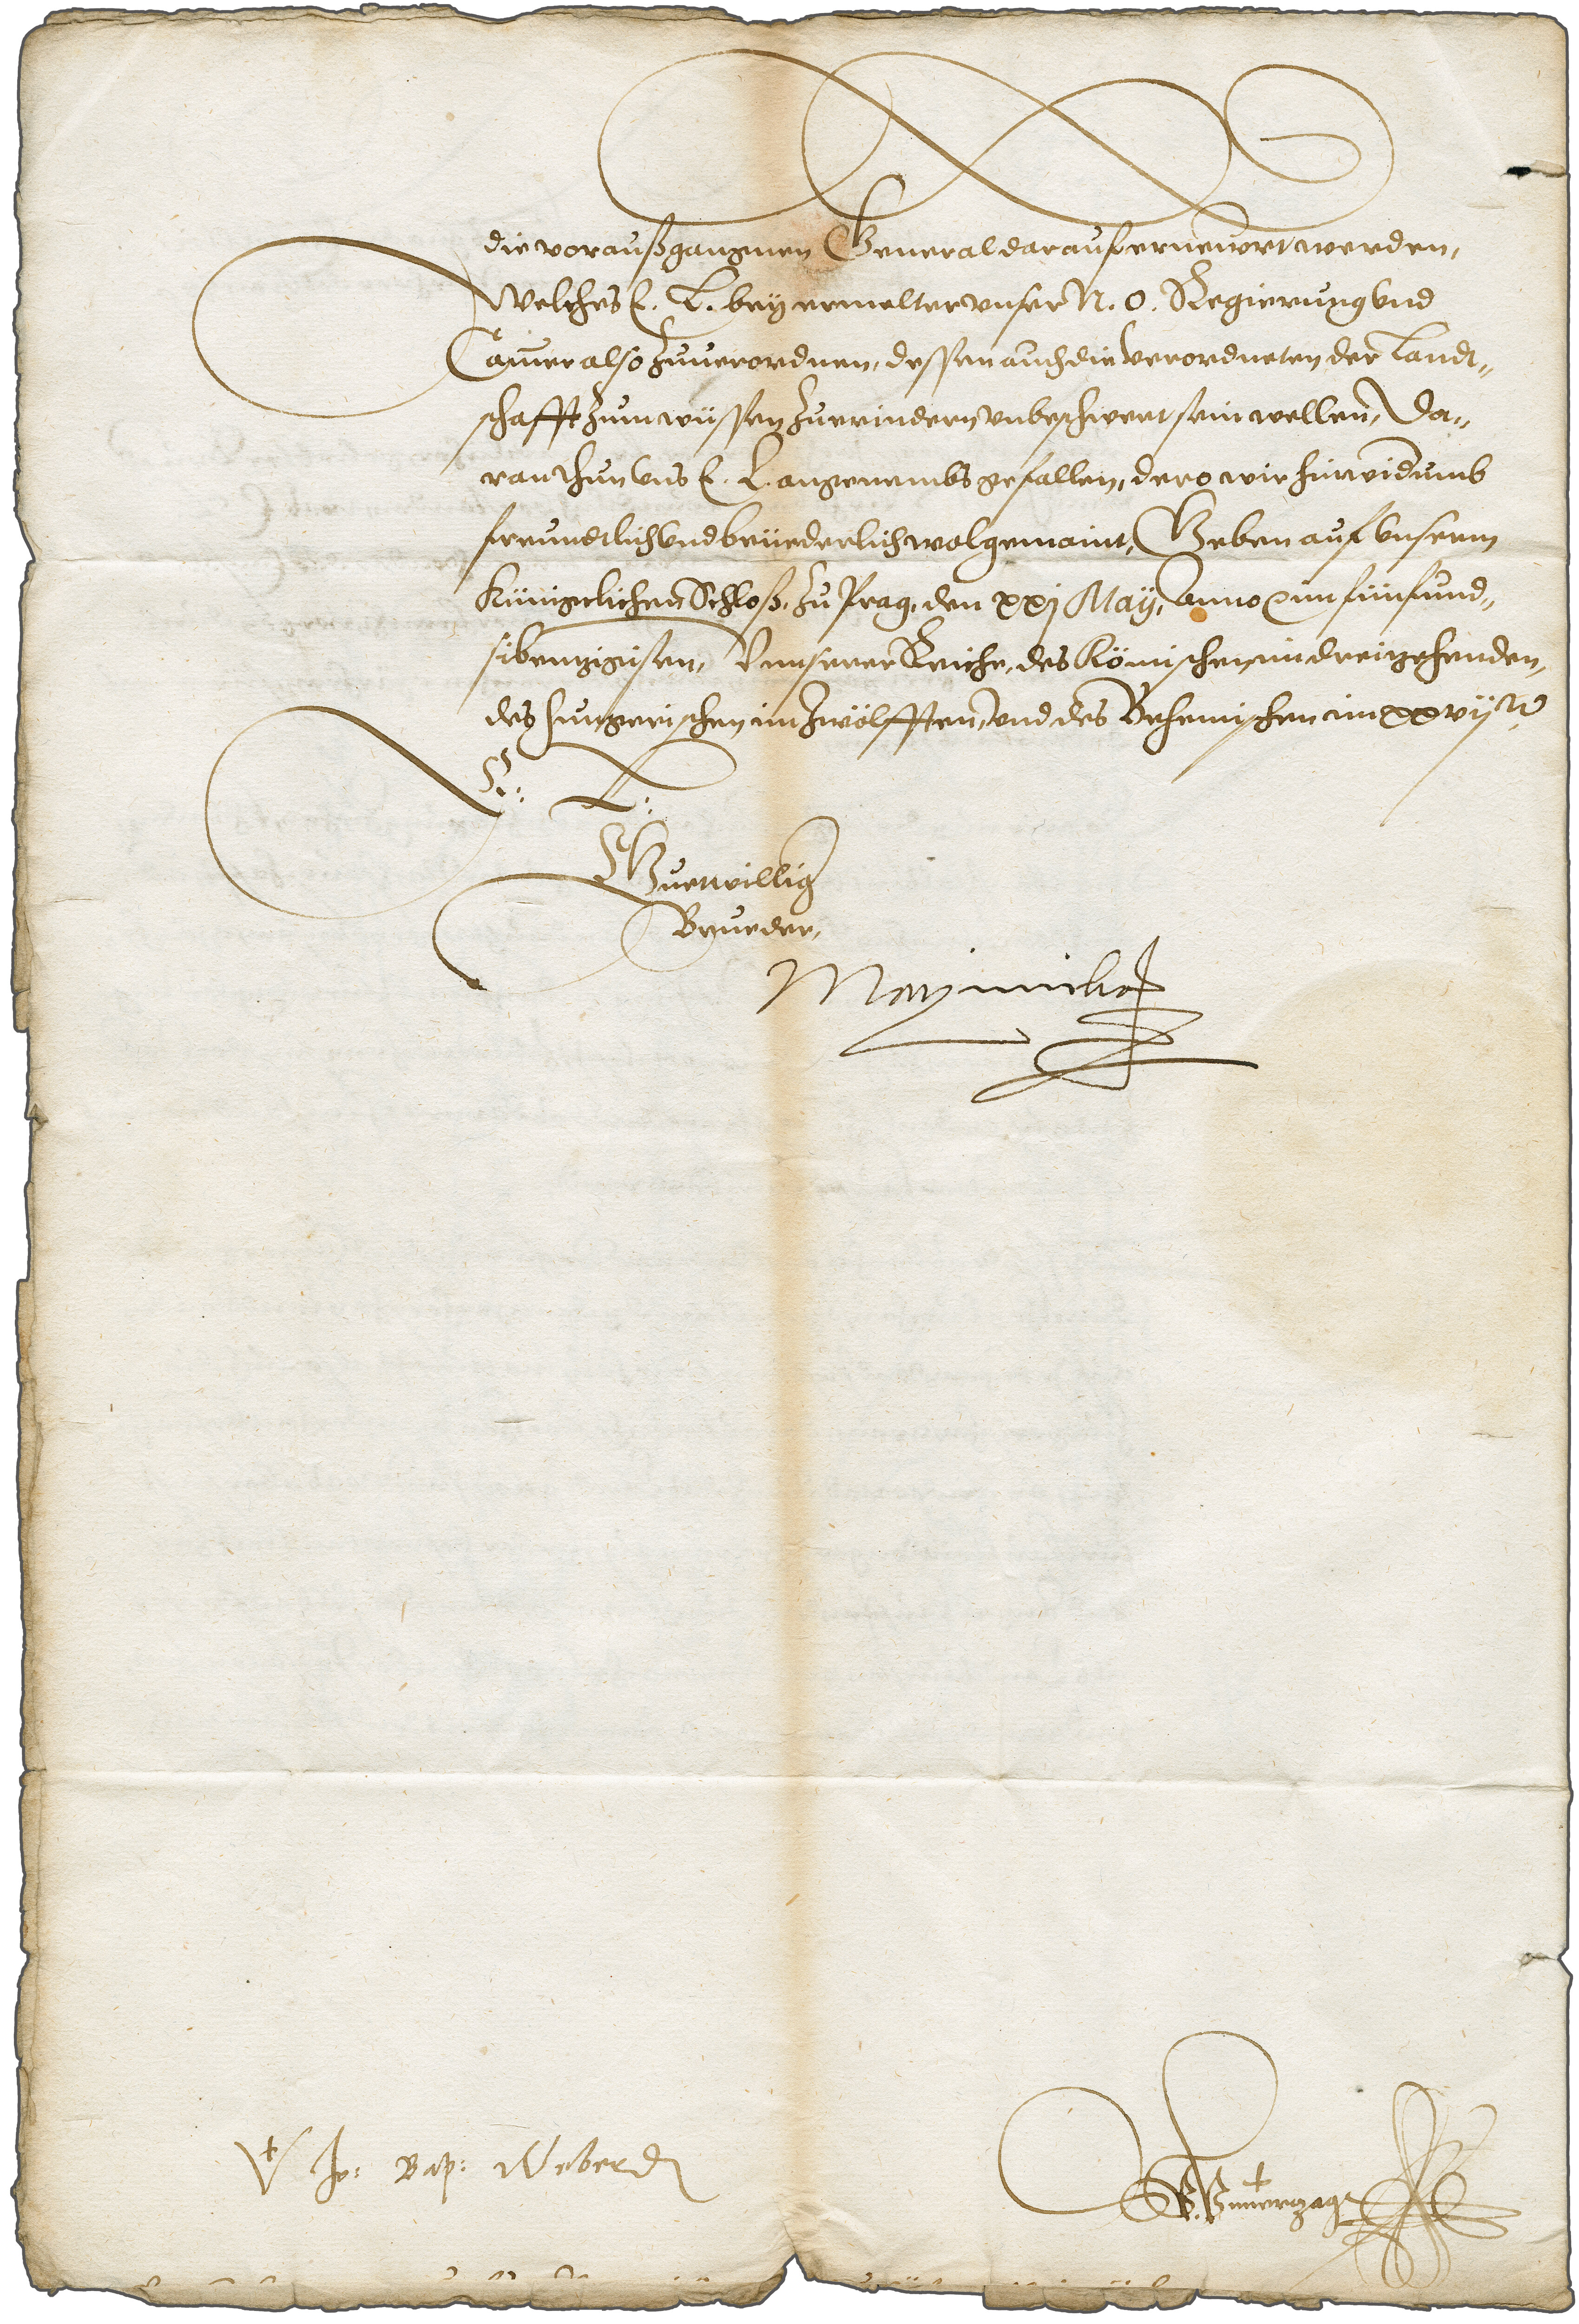 die voraußgangnen General darauf ernewert werden,
Welches E. L. bey ermelter unser N. O. Regierung und
Camer also zuuerordnen, dessen auch die Verordneten der Landt„
schafft zum wissen zuerindern unbeschwert sein wellen, Da„
ran thun uns E. L. angenembs gefallen, dero wir hinwidumb
freundtlich und brüederlich wolgemaint, Geben auf unserm
Künigclichen Schloß, zu Prag, den xxj May, Anno im fünfund„
sibentzigisten, Unnserer Reiche, des Römischen im dreizehenden,
des Hungerischen im zwölfften, und des Behemischen im xxvijten
E: L:
Guetwillig
Brueder,
Maximilian
Vt Jo: Bap: Weber D
P. Unuerzagt